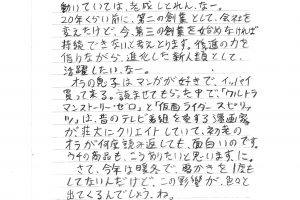 動いていては、完成しとれん、なー。
20年くらい前に、第二の創業として、会社を
変えたけど、今、第三の創業を始めなければ
持続できないと考えとります。後進の力を
借りながら、進化した新人類として、
活躍したい、なー。
オラの息子はマンガが好きで、イッパイ
買って来る。読ませてもらった中で「ウルトラ
マンストーリーゼロ」と「仮面ライダー スピリッ
ツ」は、昔のテレビ番組を愛する漫画家
が壮大にクリエイトしていて、初老の
オラが何度読み返しても、面白いのです。
ウチの商品も、こうありたいと思います、に。
さて、今年は暖冬で、雪かきを1度も
してないんだけど、この影響が、色々と
出てくるんでしょう、ね。